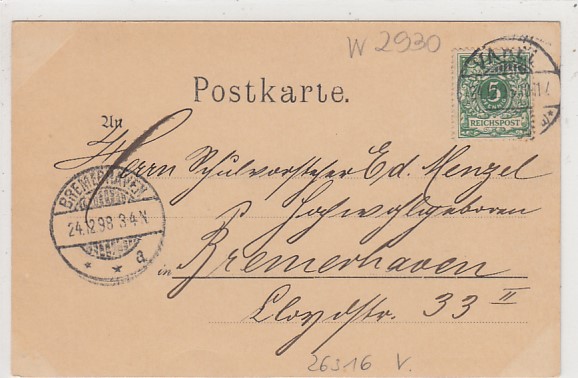 W 2930
VAREL
5
REICHSPOST
Postkarte.
An
Herrn Schulvorsteher Ed. Menzel
Hochwohlgeboren
in Bremerhaven
Lloydstr. 33 II
BREMERHAVEN
24.12.98 3-4 N
* * a
26316 V.